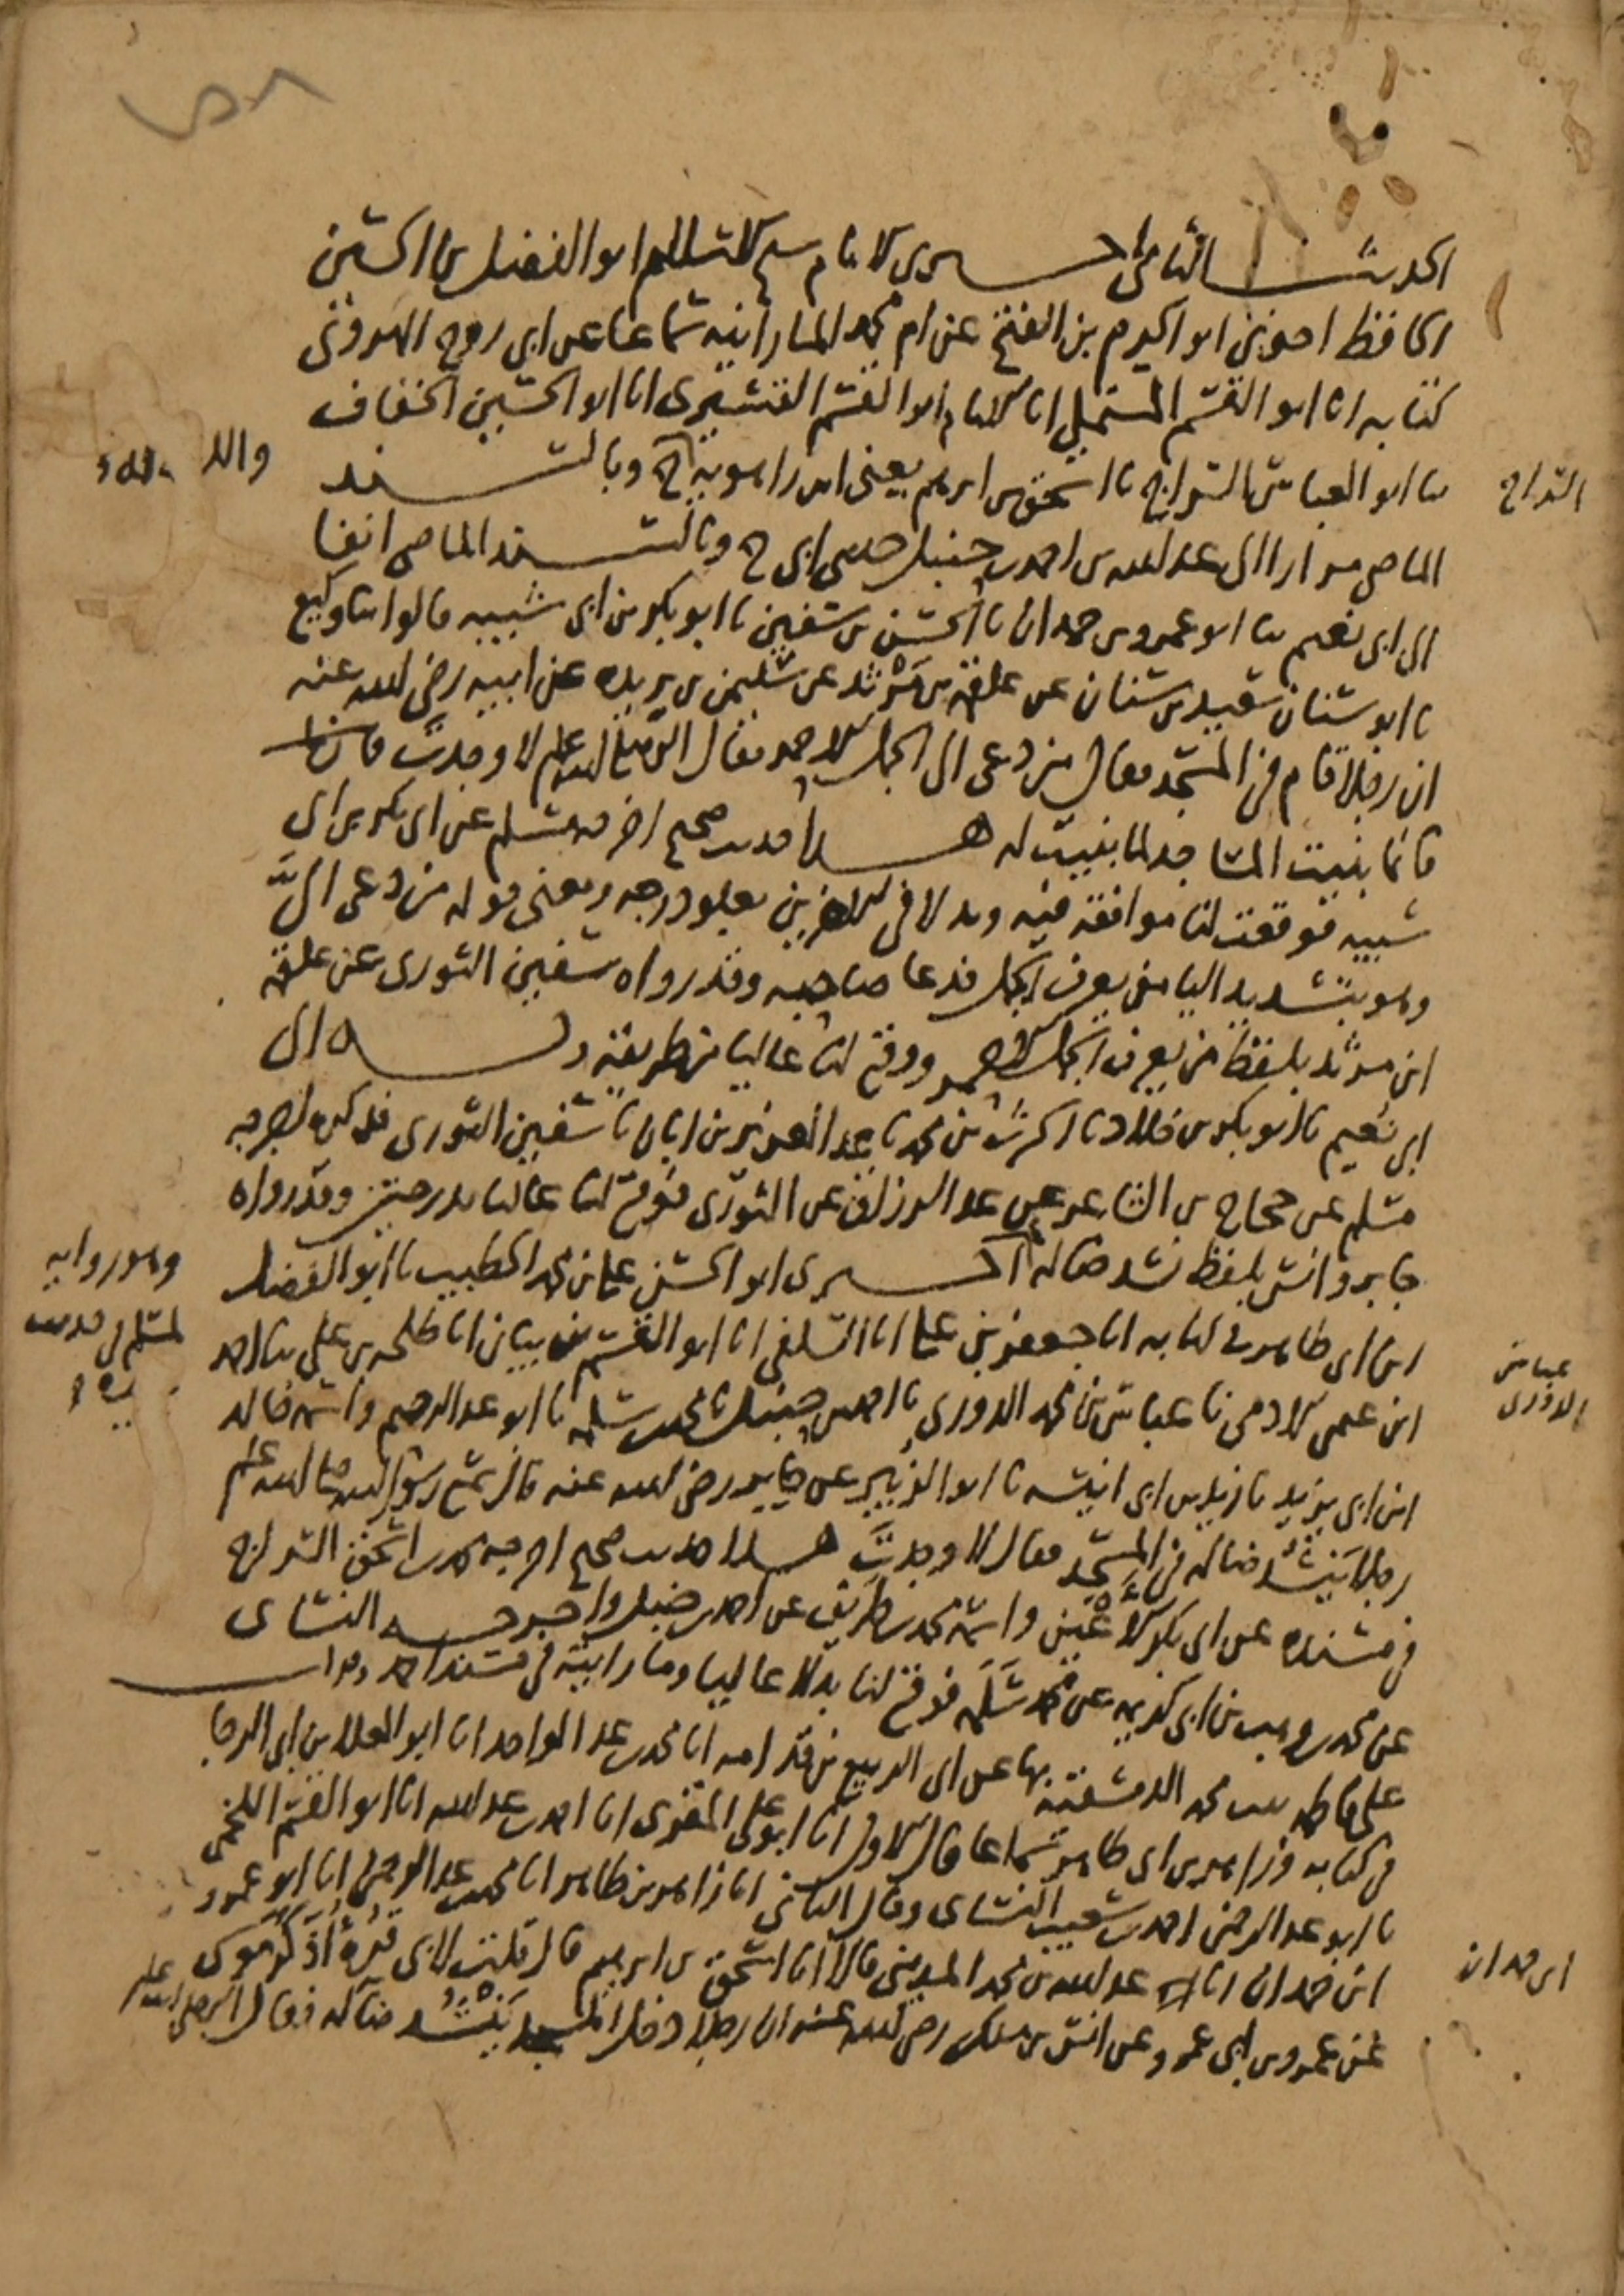 الحديث الثامن اخبرنى الامام شيخ الاسلام ابو الفضل بن الحسين
الحافظ اخبرنى ابو الحرم بن الفتح عن ام محمد المارانيه سماعا عن ابى روح الهروى
كتابه انا ابو القسم المستملى انا الامام ابو القسم القشيرى انا ابو الحسين الخفاف
ثنا ابو العباس السراج نا اسحق بن ابرهيم يعنى ابن راهويه ح وبالسند
الماضى مرارا الى عبد الله بن احمد بن حنبل حدثنى ابى ح وبالسند الماضى انفا
الى ابى نعيم ثنا ابو عمرو بن حمدان نا الحسن بن سفين نا ابو بكر بن ابى شيبه قالوا ثنا وكيع
نا ابو سنان سعيد بن سنان عن علقمه بن مَرْثد عن سليمن بن بريده عن ابيه رضى الله عنه
ان رجلا قام فى المسجد فقال من دعى الى الجمل الاحمر فقال النبى صلى الله عليه وسلم لا وجدتَ
فانما بنيت المساجد لما بنيت له هذا حديث صحيح اخرجه مسلم عن ابى بكر بن ابى
شيبه فوقعت لنا موافقه فيه وبدلا فى الاخرين بعلو درجه ومعنى قوله من دعى الىَّ
وهو بتشديد اليا من يعرف الجمل فدعا صاحبه وقد رواه سفين الثورى عن علقمه
ابن مرثد بلفظ من يعرف الجمل الاحمر ووقع لنا عاليا من طريقه وبه الى
ابى نعيم نا ابو بكر بن خلاد نا الحرث بن محمد نا عبد العزيز بن ابان نا سفين الثورى فذكره اخرجه
مسلم عن حجاج بن الشاعر عن عبد الرزاق عن الثورى فوقع لنا عاليا بدرجتين وقد رواه
جابر وانس بلفظ نشد ضاله اخبرنى ابو الحسن على بن محمد الخطيب نا ابو الفضل
ابن ابى طاهر فى كتابه انا جعفر بن على انا السلفى انا ابو القسم بن بيان انا طلحه بن على ثنا احمد
ابن عيسى الادمى نا عباس بن محمد الدورى نا احمد بن حنبل نا محمد بن سلمه نا ابو عبد الرحيم واسمه خالد
ابن ابى يزيد نا زيد بن ابى انيسه نا ابو الزبير عن جابر رضى الله عنه قال سمع رسول الله صلى الله عليه وسلم
رجلا يَنشُد ضاله فى المسجد فقال لا وجدتَ هذا حديث صحيح اخرجه محمد بن اسحق السراج
فى مسنده عن ابى بكر الاعْيَن واسمه محمد بن طريف عن احمد بن حنبل واخرجه النسائى
عن محمد بن وهب بن ابى كريمه عن محمد بن سَلَمه فوقع لنا بدلا عاليا وما رايته فى مسند احمد
على فاطمه بنت محمد الدمشقيه بها عن ابى الربيع بن قدامه انا محمد بن عبد الواحد انا ابو العلا بن ابى الرجا
فى كتابه وزاهر بن ابى طاهر سماعا قال الاول انا ابو على المقرى انا احمد بن عبد الله انا ابو القسم اللخمى
نا ابو عبد الرحمن احمد بن شعيب النسائى وقال الثانى انا زاهر بن طاهر انا محمد بن عبد الرحمن انا ابو عمرو
ابن حمدان انا عبد الله بن محمد المدينى قالا انا اسحق بن ابرهيم قال قلت لابى قُرَّة أذَكَرَ موسى
عن عمرو بن ابى عمرو عن انس بن ملك رضى الله عنه ان رجلا دخل المسجد يَنْشُد ضاله فقال النبى صلى الله عليه
السراج
وهو روايه
لمسلم فى حديث
عباس
الدورى
ابن حمدان